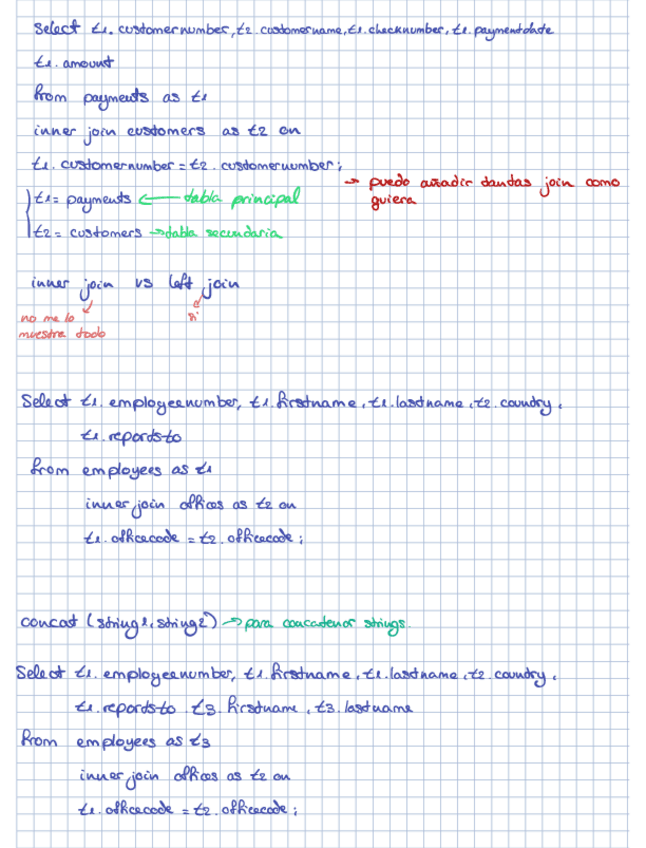 Select t1. customernumber, t2. customername, t1. checknumber, t1. paymentdate
t1. amount
from payments as t1
inner join customers as t2 on
t1. customernumber = t2. customernumber;
→ puedo añadir tantas join como
quiera
t1= payments ← tabla principal
t2= customers → tabla secundaria
inner join vs left join
no me lo
muestra todo
si
Select t1. employeenumber, t1. firstname, t1. lastname, t2. country,
t1. reportsto
from employees as t1
inner join offices as t2 on
t1. officecode = t2. officecode;
concat (string1, string2) → para concatenar strings.
Select t1. employeenumber, t1. firstname, t1. lastname, t2. country,
t1. reportsto t3. firstname, t3. lastname
from employees as t3
inner join offices as t2 on
t1. officecode = t2. officecode;